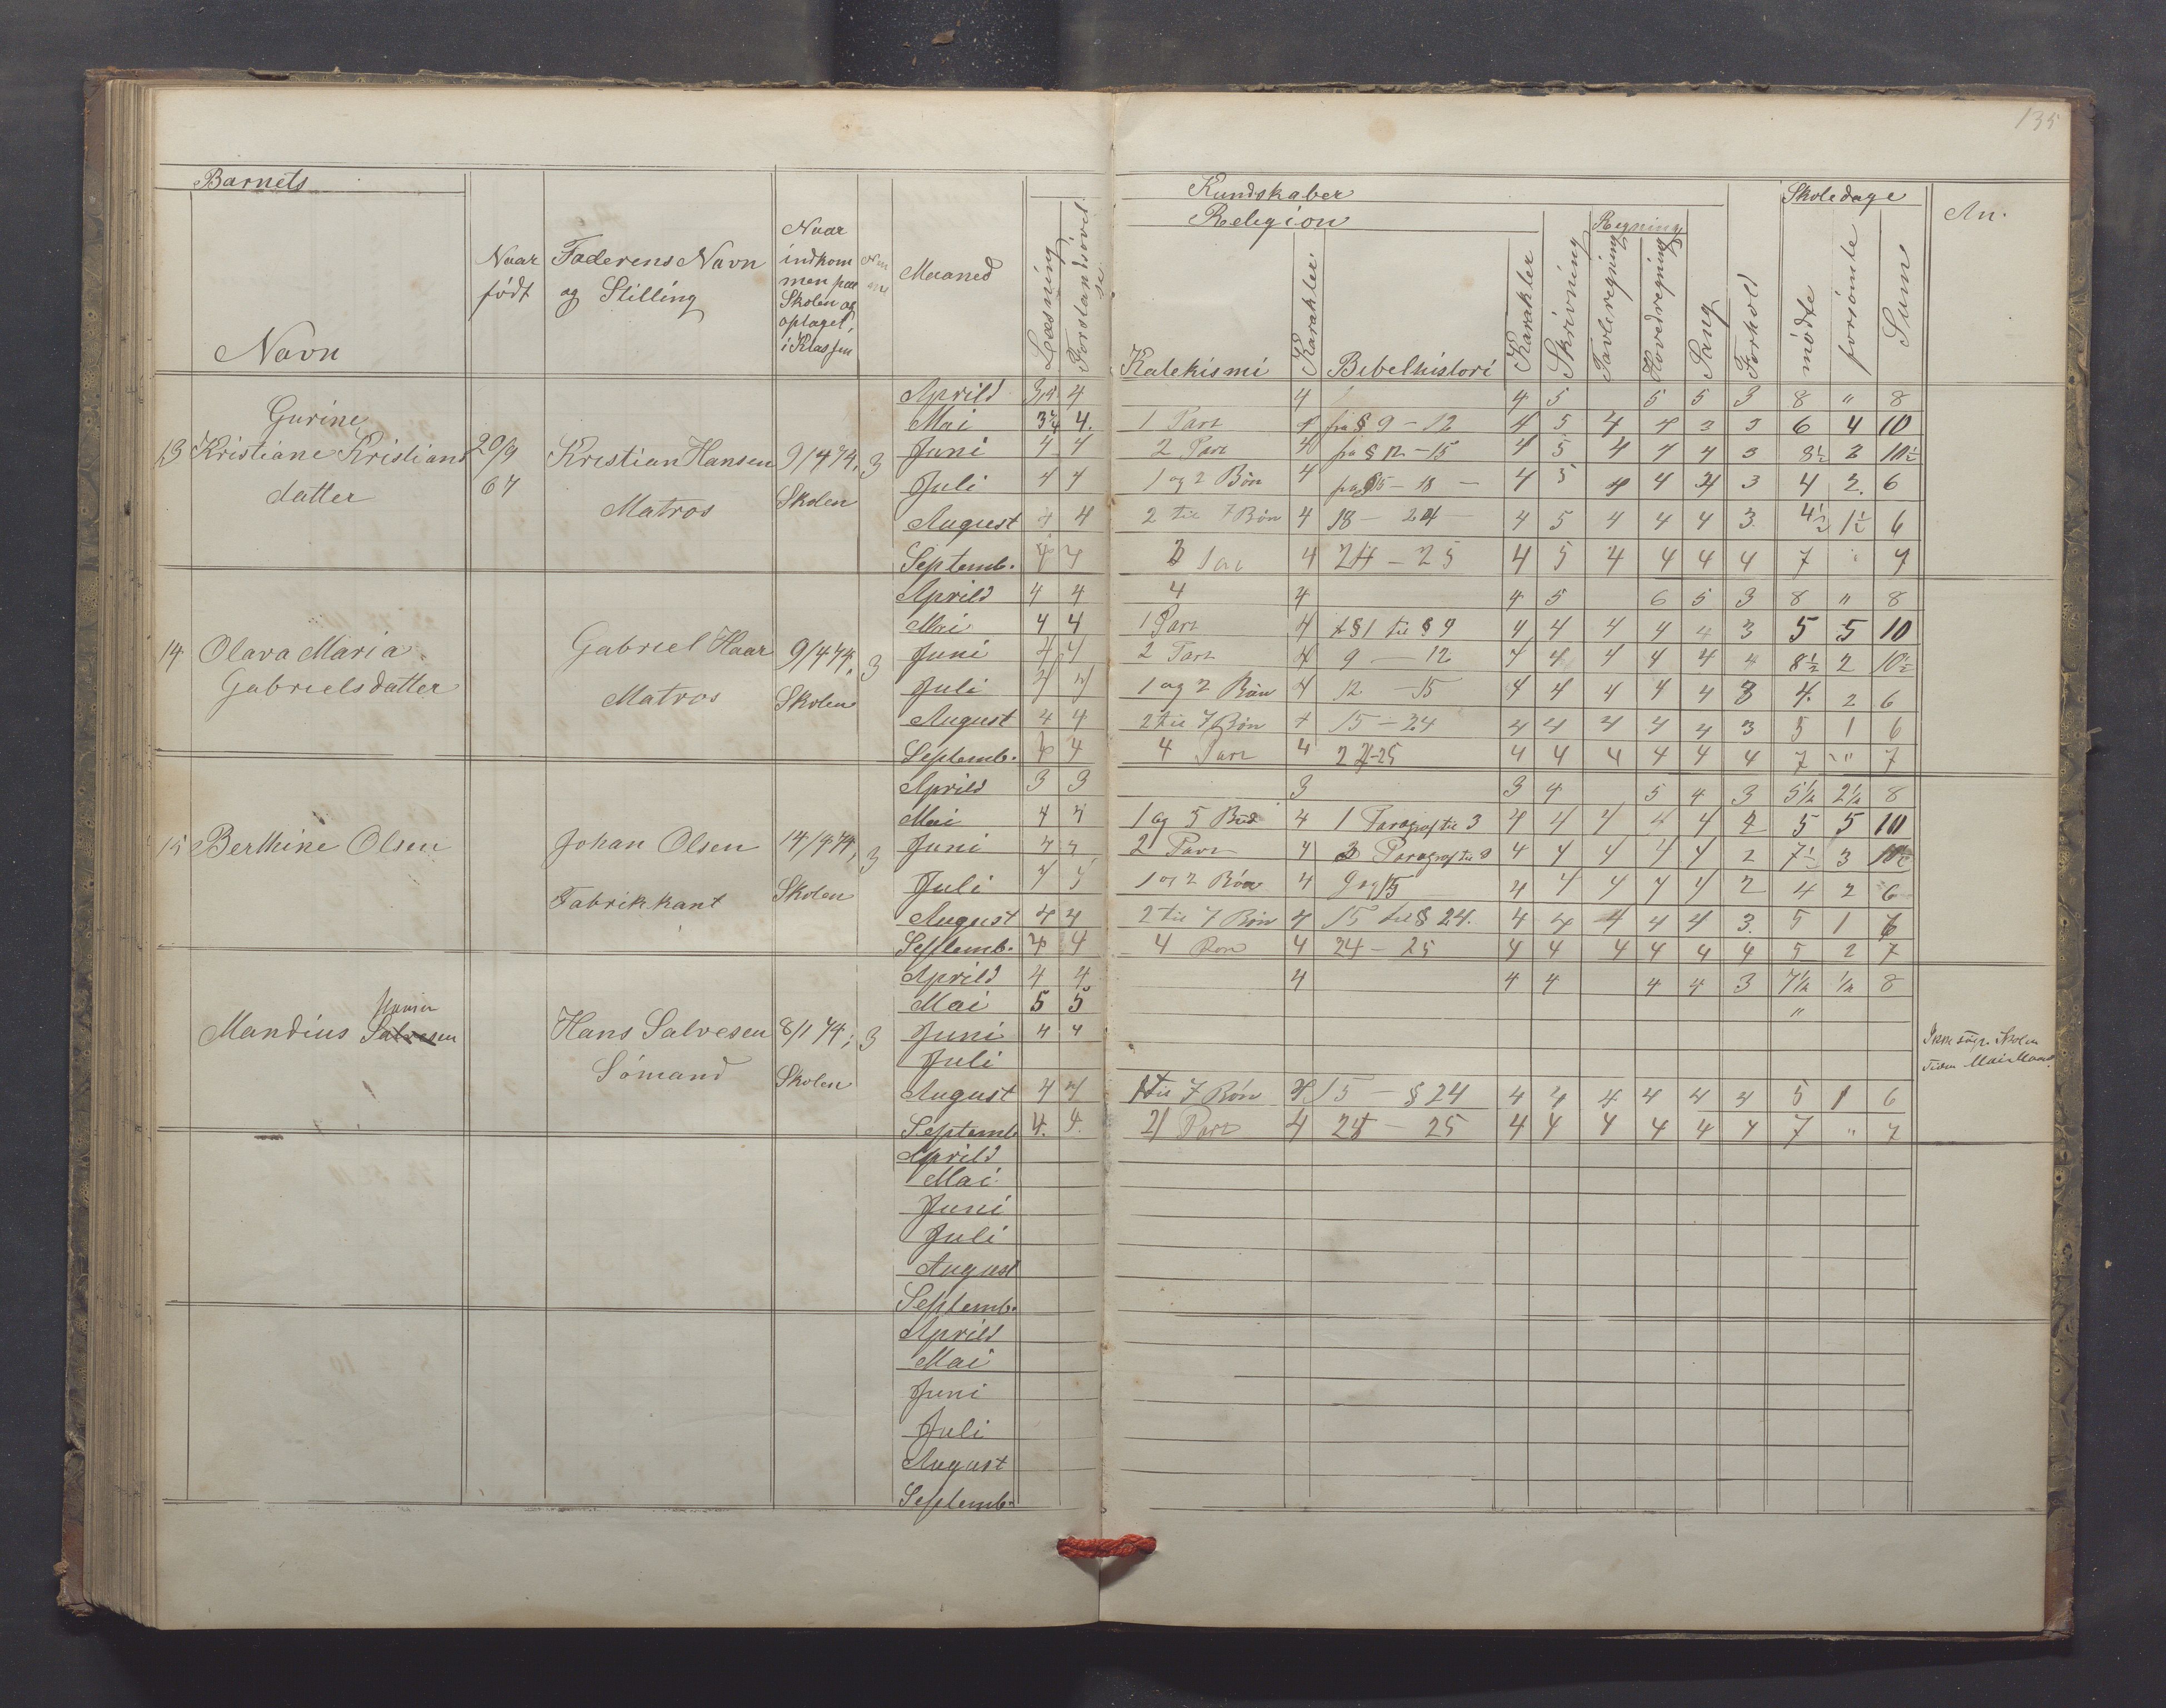 135
Barnets
Navn
Naar født
Faderens Navn og Stilling
Naar indkommen paa Skolen og optaget i Klassen
Maaned
Læsning
Forstandsövelse
Kundskaber
Religion
Katekismi
Karakter
Bibelhistori
Karakter
Skrivning
Regning
Tavleregning
Hovedregning
Sang
Forhold
Skoledage
mödte
forsömte
Sum
An.
13 Gurine Kristiane Kristiansdatter
Kristian Hansen Matros
9/4 74, Skolen
3
Aprild 4 4 4 5 5 5 3 8 " 8
Mai 4. 1 Part fra § 9 – 12 4 5 4 4 3 3 6 4 10
Juni 4 4 2 Part 4 fra § 12 – 15 4 5 4 4 4 3 8½ 2 10½
Juli 4 4 1 og 2 Bön 4 – 18 – 4 5 4 4 4 3 4 2. 6
August 4 4 2 til 7 Bön 4 18 – 24 – 4 5 4 4 4 3 4½ 1½ 6
Septemb. 4 4 4 24 – 25 4 5 4 4 4 4 7 " 7
14 Olava Maria Gabrielsdatter
Gabriel Haar Matros
9/4 74, Skolen
3
Aprild 4 4 4 4 4 5 6 5 3 8 " 8
Mai 4 4 1 Part 4 § 1 til § 9 4 4 4 4 4 3 5 5 10
Juni 4 4 2 Part 4 9 – 12 4 4 4 4 4 4 8½ 2 10½
Juli 4 4 1 og 2 Bön 4 12 – 15 4 4 4 4 4 3 4. 2 6
August 4 4 2 til 7 Bön 4 15 – 24 4 4 4 4 4 3 5 1 6
Septemb. 4 4 4 Part 4 24–25 4 4 4 4 4 4 7 " 7
15 Berthine Olsen
Johan Olsen Fabrikkant
14/4 74, Skolen
3
Aprild 3 3 3 3 4 5 4 3 5½ 2½ 8
Mai 4 4 1 og 5 Bud 4 1 Paragraf til 3 4 4 4 4 4 2 5 5 10
Juni 4 4 2 Part 4 3 Paragraf til 9 4 4 4 4 4 2 7½ 3 10½
Juli 4 4 1 og 2 Bön 4 9 og 15 4 4 4 4 4 2 4 2 6
August 4 4 2 til 7 Bön 4 15 til § 24. 4 4 4 4 4 3. 5 1 6
Septemb. 4 4 4 Bön 4 24 – 25 4 4 4 4 4 4 5 2 7
Mandius Salvesen
Hans Salvesen Sömand
8/1 74; Skolen
3
Aprild 4 4 4 4 4 4 4 3 7½ ½ 8
Mai 5 5 "
Juni 4 4
Juli
August 4 4 1 til 7 Bön 4 15 – § 24 4 4 4 4 4 4 5 1 6
Septemb 4. 4. Part 4 24 – 25 4 4 4 4 4 4 7 " 7
Skolen siden Mai Maaned
Aprild
Mai
Juni
Juli
August
Septemb.
Aprild
Mai
Juni
Juli
August
Septemb.